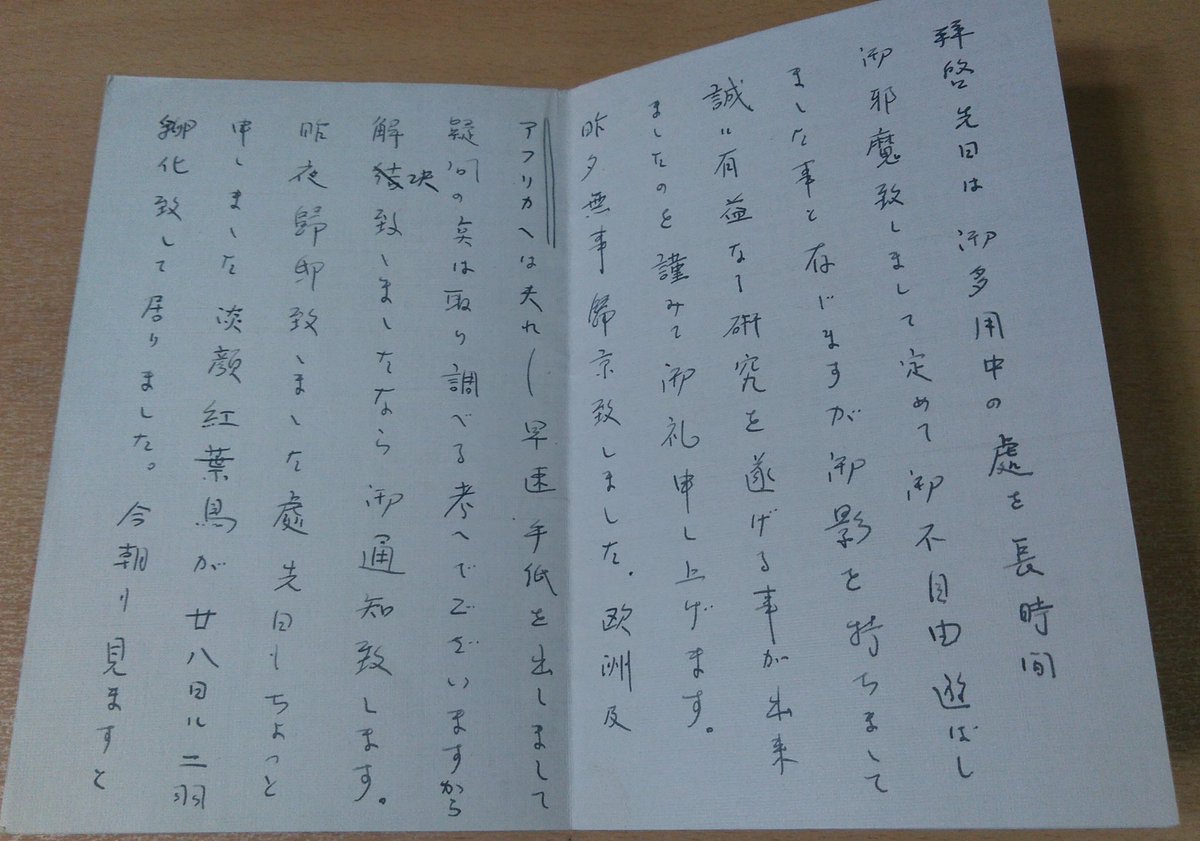 拝啓先日は御多用中の處を長時間
御邪魔致しまして定めて御不自由遊ばし
ました事と存じますが御影を持ちまして
誠に有益なる研究を遂げる事が出来
ましたのを謹みて御礼申し上げます。
昨夕無事歸京致しました。欧洲及
アフリカへは夫れ〳〵早速手紙を出しまして
疑问の奌は取り調べる考へでございますから
解決致しましたなら御通知致します。
昨夜歸邸致しました處先日もちょっと
申しました淡顔紅葉鳥が廿八日に二羽
孵化致して居りました。今朝見ますと